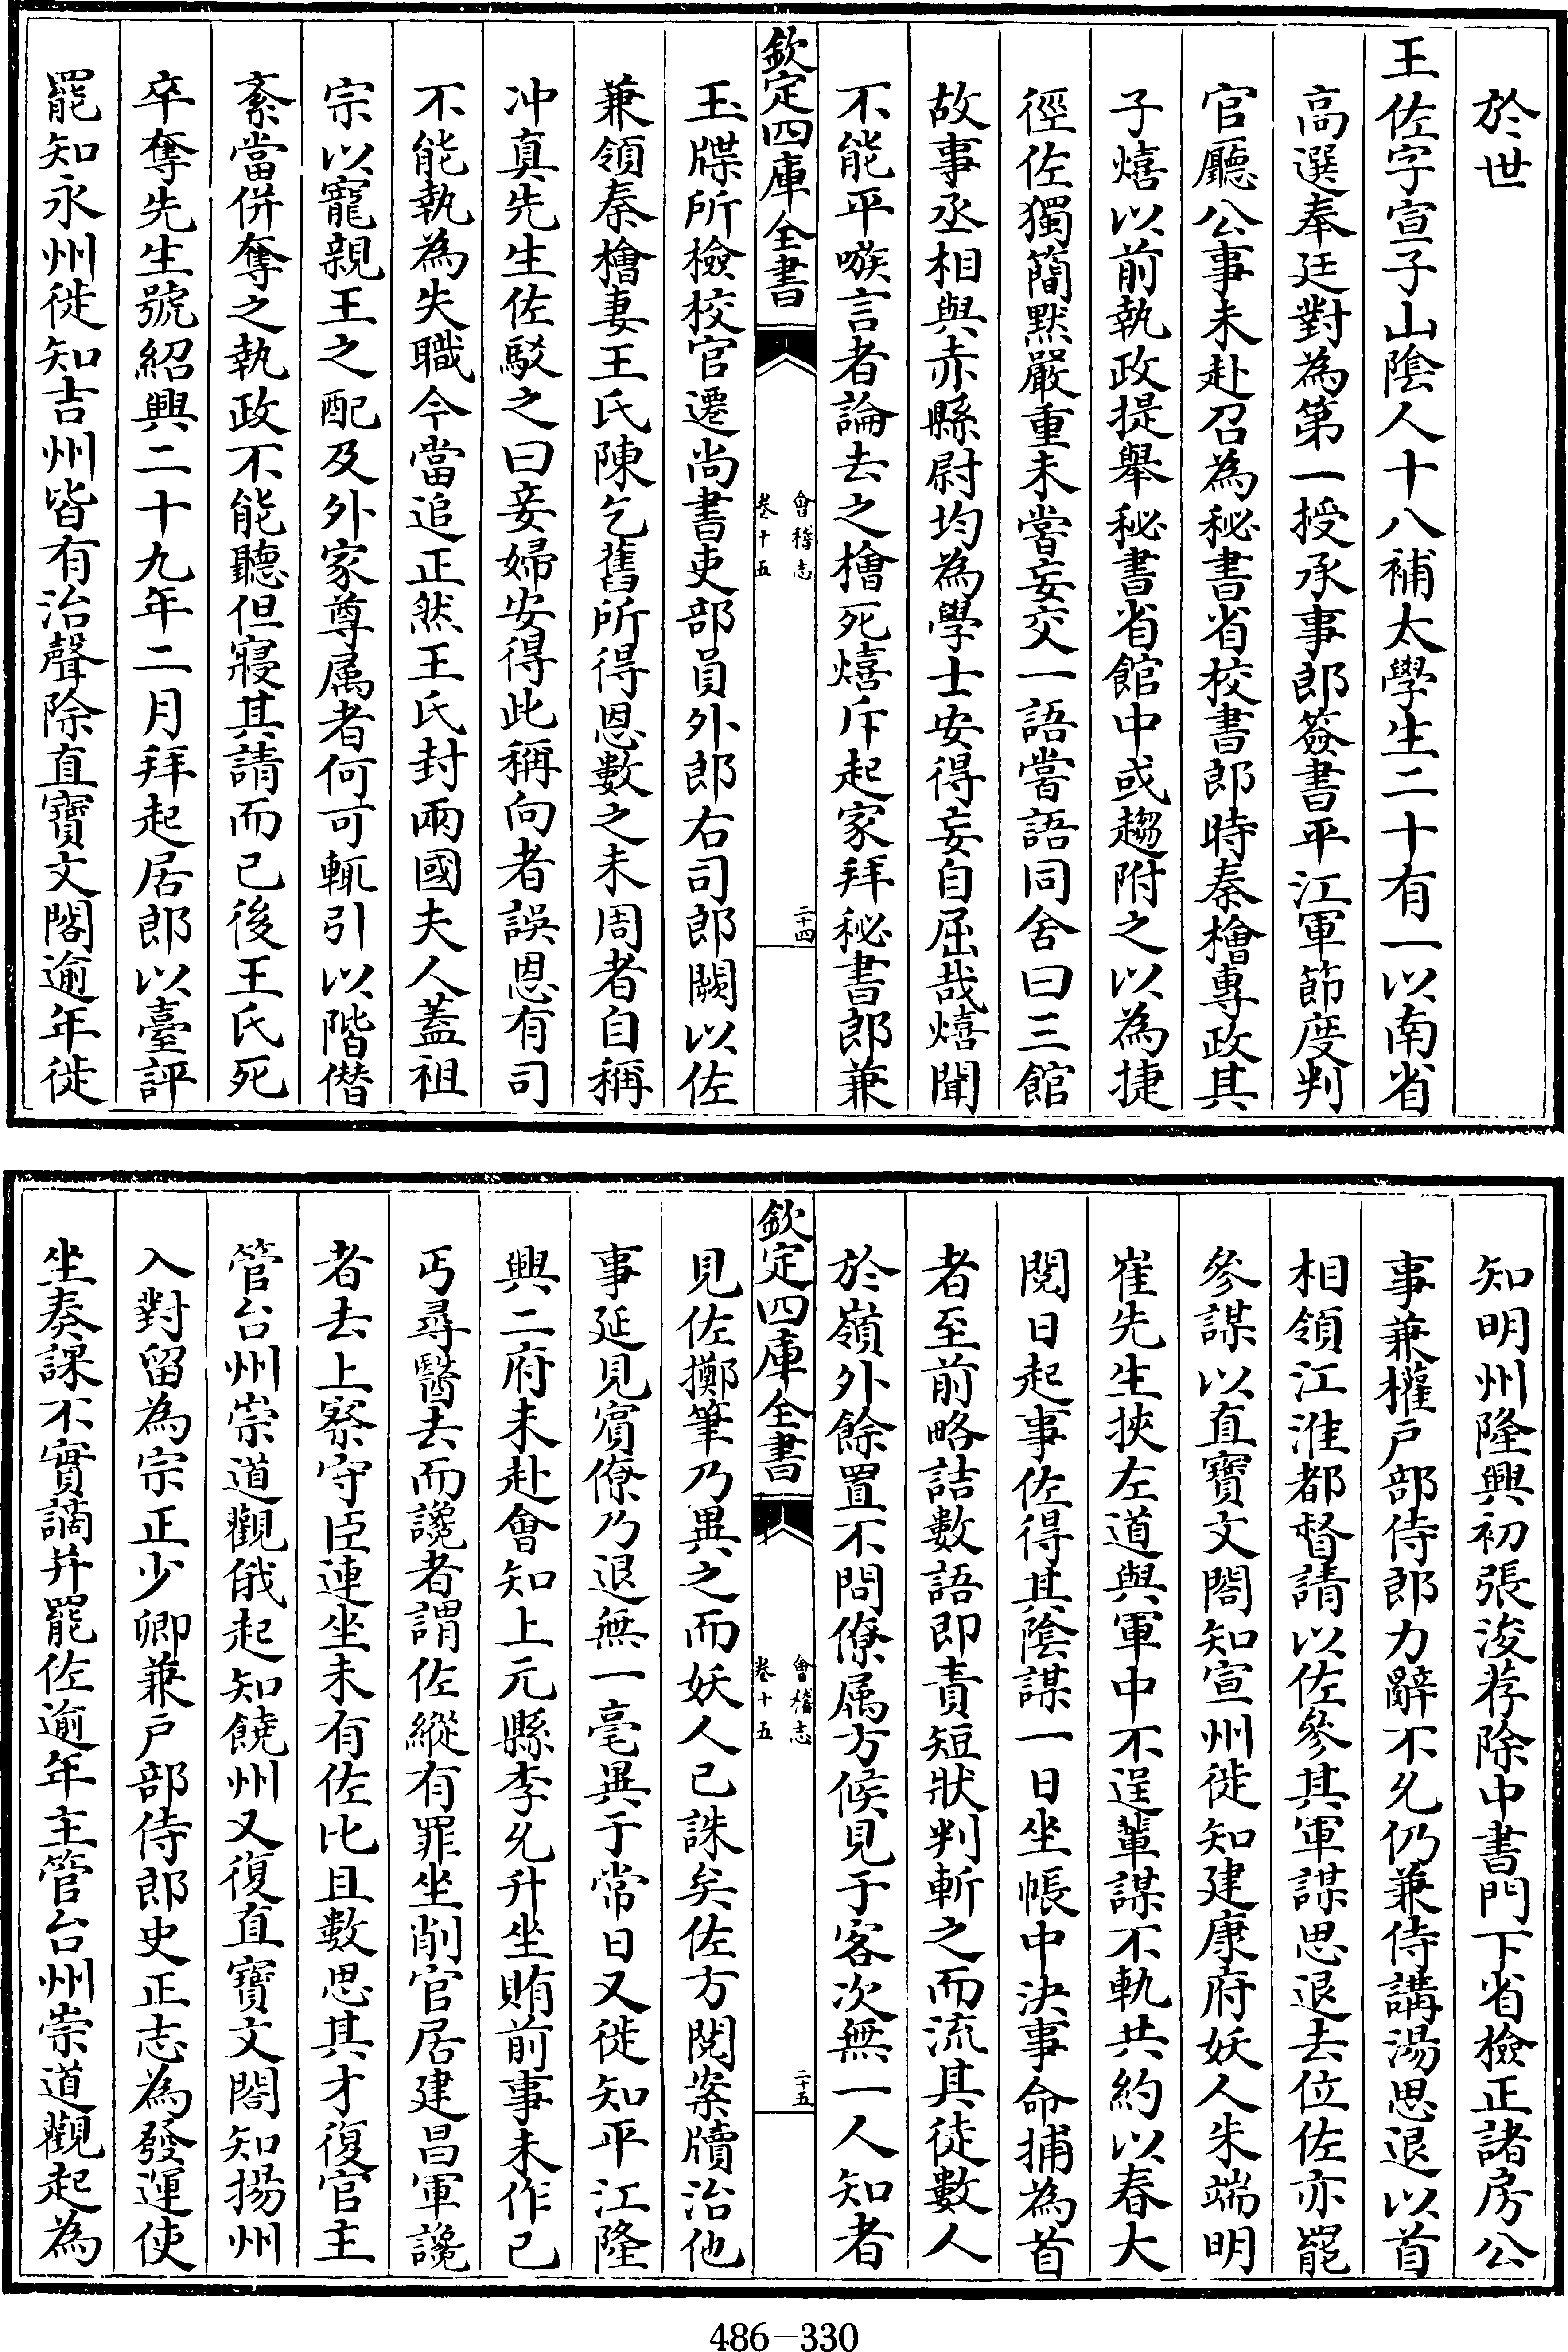 於世
王佐字宣子山陰人十八補太學生二十有一以南省
高選奉廷對為第一授承事郎簽書平江軍節度判
官廳公事未赴召為秘書省校書郎時秦檜專政其
子熺以前執政提舉秘書省館中或趨附之以為捷
徑佐獨簡默嚴重未嘗妄交一語嘗語同舍曰三館
故事丞相與赤縣尉均為學士安得妄自屈哉熺聞
不能平嗾言者論去之檜死熺斥起家拜秘書郎兼
欽定四庫全書
會稽志
卷十五
二十四
玉牒所檢校官遷尚書吏部員外郎右司郎闕以佐
兼領秦檜妻王氏陳乞舊所得恩數之未周者自稱
冲真先生佐駁之曰妾婦安得此稱向者誤恩有司
不能執為失職今當追正然王氏封兩國夫人蓋祖
宗以寵親王之配及外家尊属者何可輒引以階僭
紊當併奪之執政不能聽但寢其請而已後王氏死
卒奪先生號紹興二十九年二月拜起居郎以臺評
罷知永州徙知吉州皆有治聲除直寶文閣逾年徙
知明州隆興初張浚荐除中書門下省檢正諸房公
事兼權户部侍郎力辭不允仍兼侍講湯思退以首
相領江淮都督請以佐參其軍謀思退去位佐亦罷
參謀以直寶文閣知宣州徙知建康府妖人朱端明
崔先生挾左道與軍中不逞輩謀不軌共約以春大
閱日起事佐得其陰謀一日坐帳中決事命捕為首
者至前略詰數語即責短狀判斬之而流其徒數人
於嶺外餘置不問僚属方候見于客次無一人知者
欽定四庫全書
會稽志
卷十五
二十五
見佐擲筆乃異之而妖人已誅矣佐方閱案牘治他
事延見賓僚乃退無一毫異于常日又徙知平江隆
興二府未赴會知上元縣李允升坐賄前事未作已
丐尋醫去而讒者謂佐縱有罪坐削官居建昌軍讒
者去上察守臣連坐未有佐比且數思其才復官主
管台州崇道觀俄起知饒州又復直寶文閣知揚州
入對留為宗正少卿兼户部侍郎史正志為發運使
坐奏課不實謫并罷佐逾年主管台州崇道觀起為
486-330